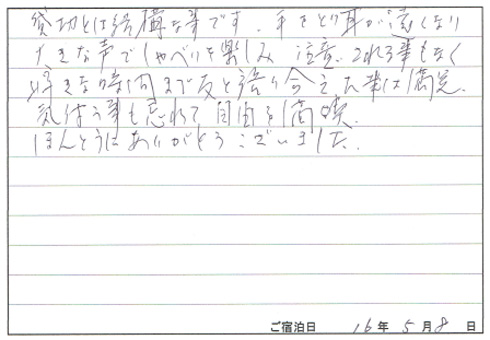 貸切とは結構な事です。年をとり耳が遠くなり
大きな声でしゃべりを楽しみ 注意される事もなく
好きな時間まで友と語り合えた事は満足。
気使う事も忘れて自由を満喫。
ほんとうにありがとうございました。
ご宿泊日 16年 5月 8日